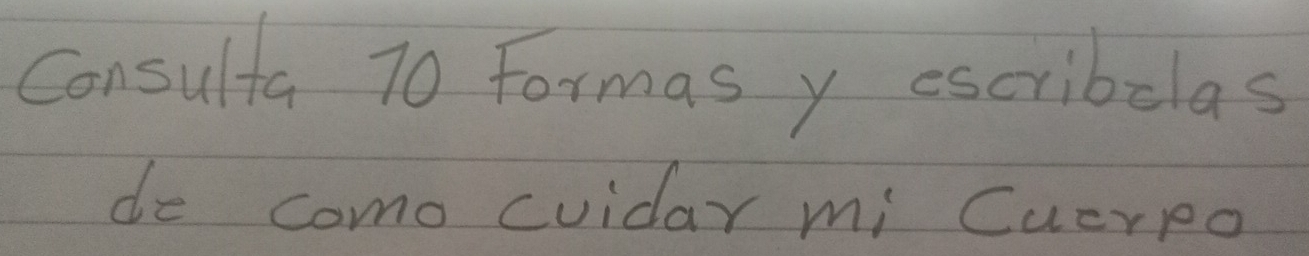 Consulta 10 Formas y escribelas
de como cuidar mi Cuerpo